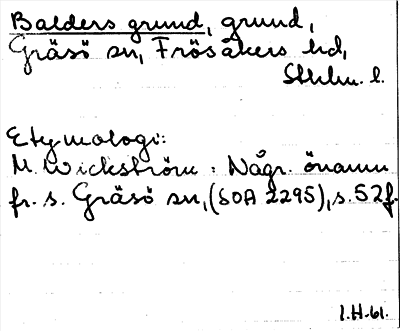 Balders grund, grund,
Gräsö sn, Frösåkers hd,
Sthlm. l.
Etymologi:
M. Wickström: Någr. önamn
fr. s. Gräsö sn, (SOA 2295), s. 52 f.
I.H-61.